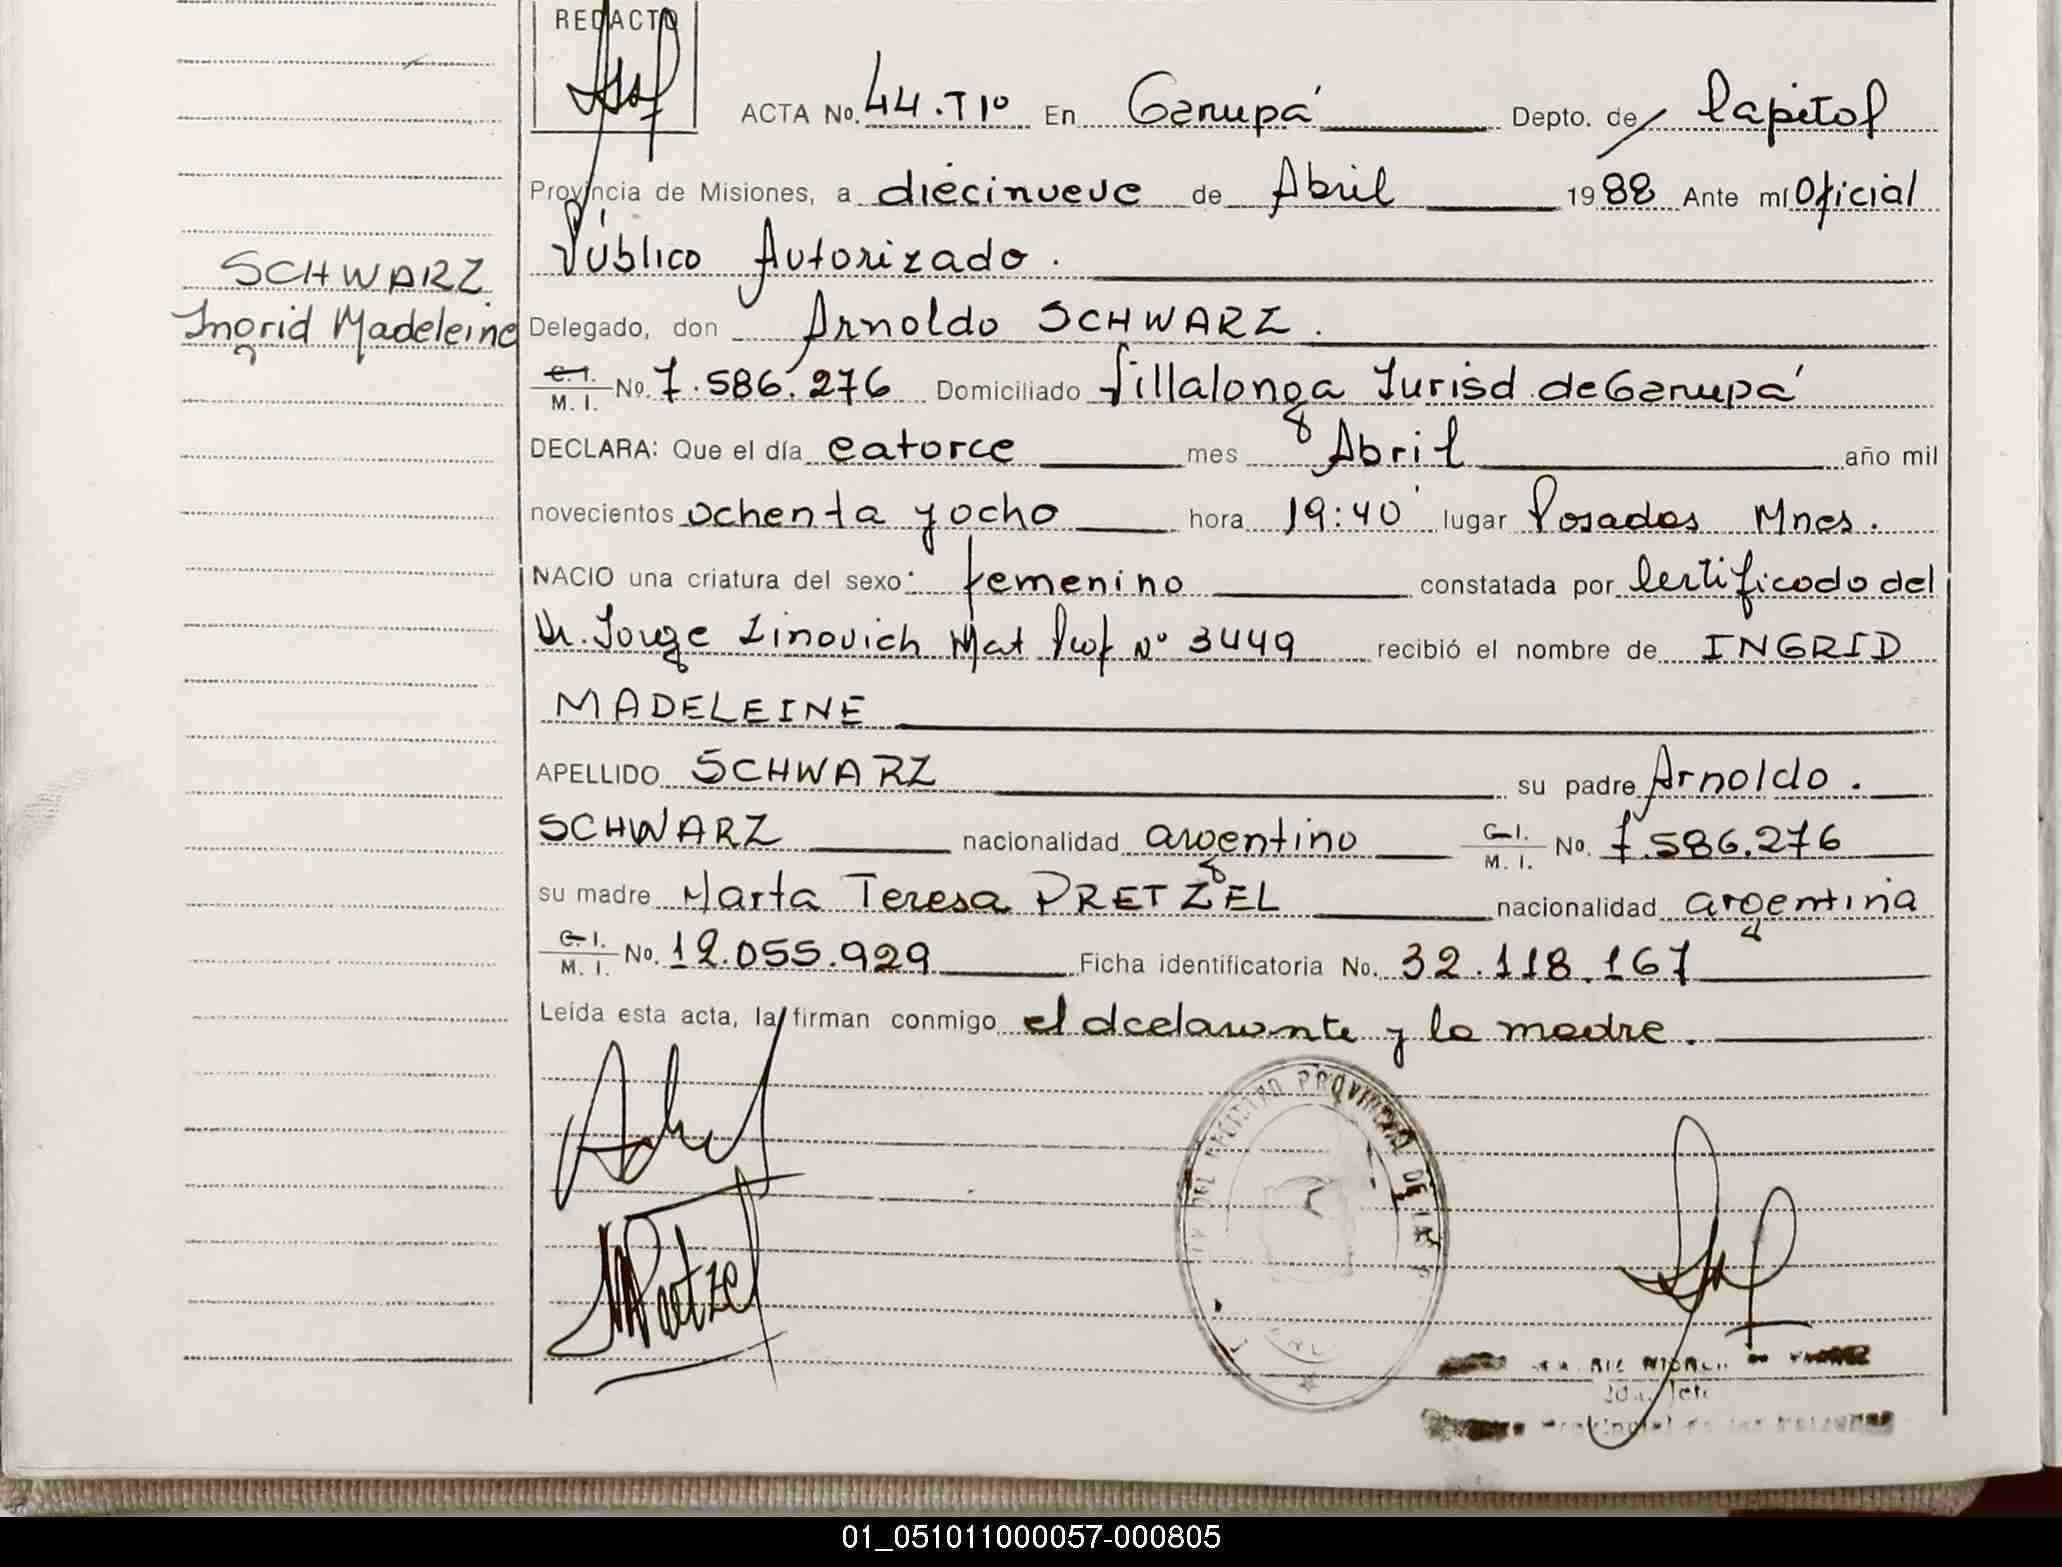 REDACTO
ACTA No. 44.Tiº En Garupá Depto. de Capital
Provincia de Misiones, a diecinueve de Abril 1988 Ante mí Oficial
Público Autorizado.
SCHWARZ
Ingrid Madeleine
Delegado, don Arnoldo SCHWARZ.
C. I. / M. I. No. 7.586.276 Domiciliado Villalonga Jurisd. de Garupá
DECLARA: Que el día catorce mes Abril año mil
novecientos ochenta y ocho hora 19:40 lugar Posadas Mnes.
NACIO una criatura del sexo: femenino constatada por Certificado del
Dr. Jorge Linovich Mat Prof Nº 3449 recibió el nombre de INGRID
MADELEINE
APELLIDO SCHWARZ su padre Arnoldo.
SCHWARZ nacionalidad argentino C. I. / M. I. No. 7.586.276
su madre Marta Teresa PRETZEL nacionalidad argentina
C. I. / M. I. No. 12.055.929 Ficha identificatoria No. 32.118.167
Leída esta acta, la firman conmigo el declarante y la madre.
DEL REGISTRO PROVINCIAL DE LAS
MPretzel
01_051011000057-000805